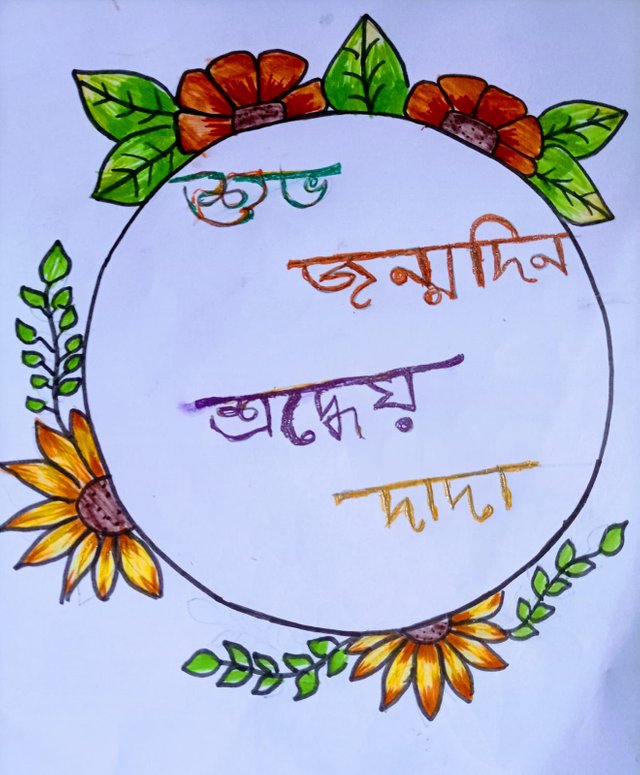 শুভ
জন্মদিন
শ্রদ্ধেয়
দাদা